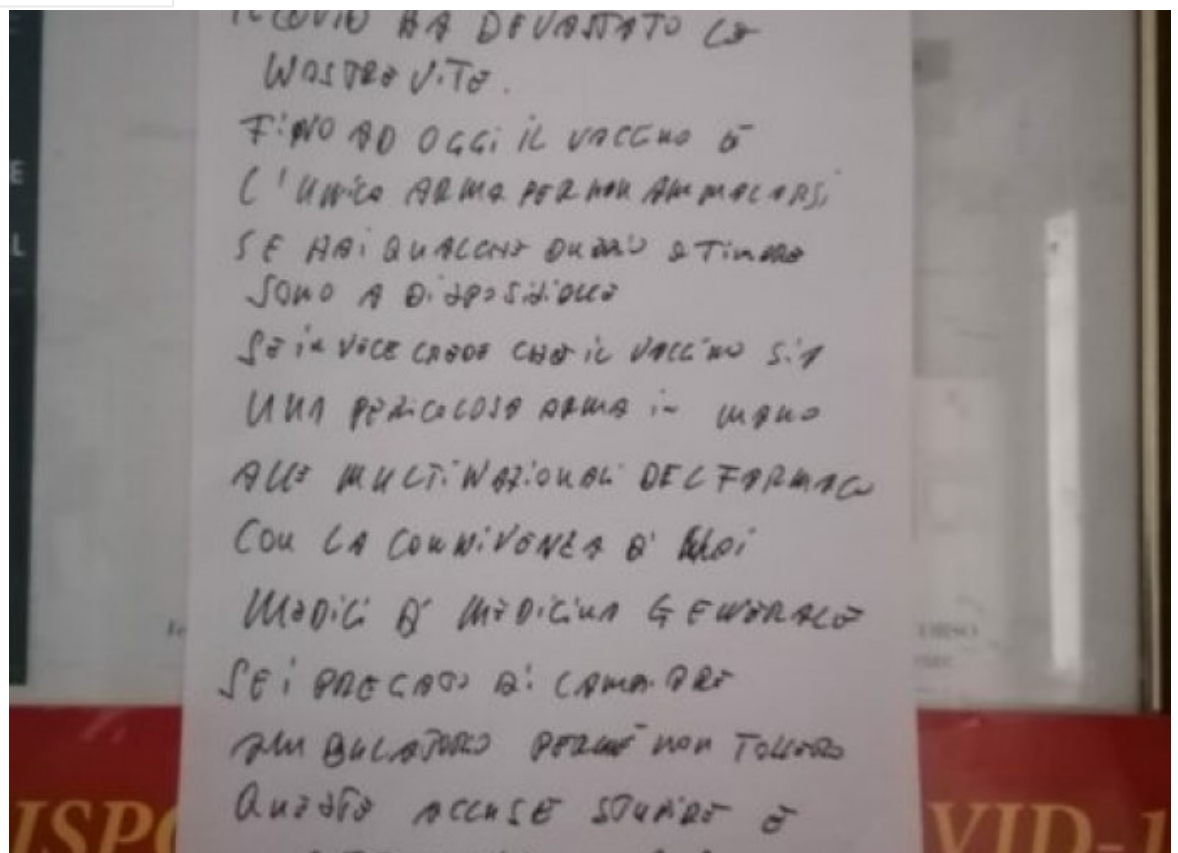 IL COVID HA DEVASTATO LE
NOSTRE VITE.
FINO AD OGGI IL VACCINO È
L'UNICA ARMA PER NON AMMALARSI
SE HAI QUALCHE DUBBIO E TIMORE
SONO A DISPOSIZIONE
SE INVECE CREDE CHE IL VACCINO SIA
UNA PERICOLOSA ARMA IN MANO
ALLE MULTINAZIONALI DEL FARMACO
CON LA CONNIVENZA DI NOI
MEDICI DI MEDICINA GENERALE
SEI PREGATO DI CAMBIARE
AMBULATORIO PERCHÉ NON TOLLERO
QUESTE ACCUSE STUPIDE E
ISPO
VID-1